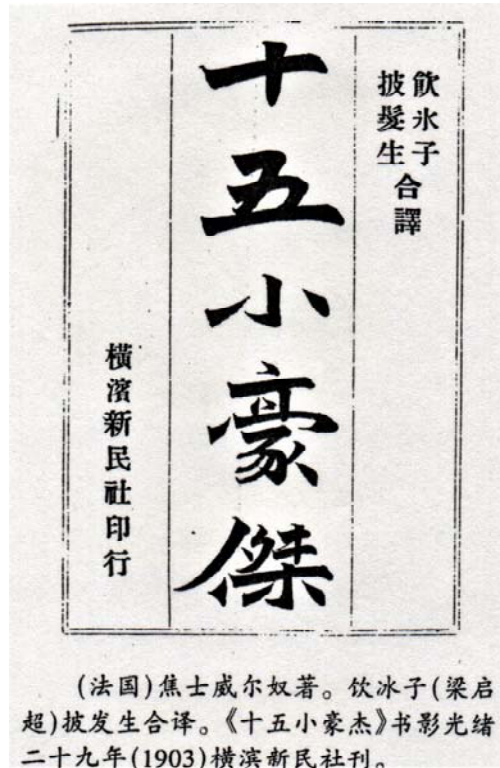 飲氷子
披髮生
合譯
十五小豪傑
橫濱新民社印行
(法国)焦士威尔奴著。饮冰子(梁启
超)披发生合译。《十五小豪杰》书影光绪
二十九年(1903)横滨新民社刊。